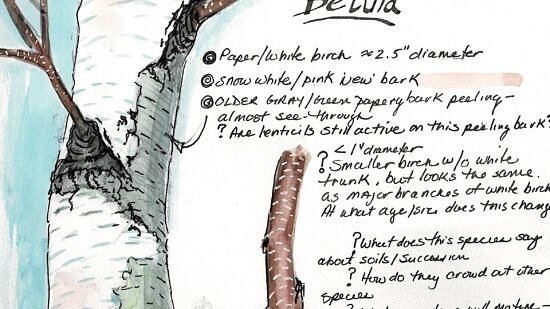 Betula
Paper/White birch ≈ 2.5" diameter
Snow white/pink new bark
OLDER GRAY/Green papery bark peeling -
almost see-through
? Are lenticils still active on this peeling bark?
< 1" diameter
? Smaller birch w/o white
trunk, but looks the same
as major branches of white birch
At what age/size does this change
? What does this species say
about soils/succession
? How do they crowd out other
species